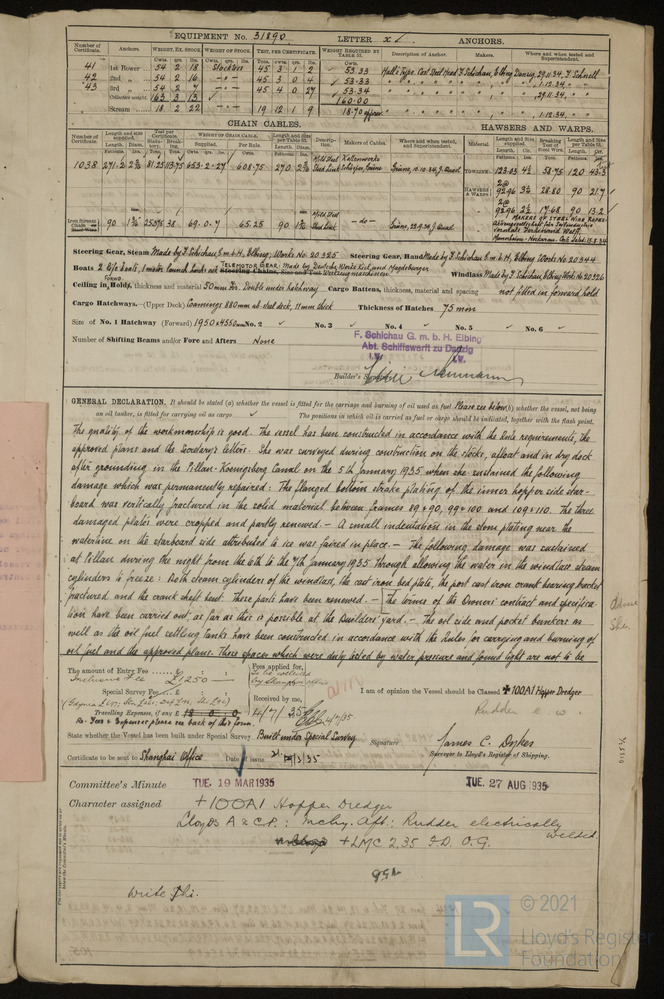 EQUIPMENT No. 31890 LETTER x ANCHORS.
Number of Certificate. Anchors. WEIGHT, EX. STOCK WEIGHT OF STOCK. TEST, PER CERTIFICATE. WEIGHT REQUIRED BY TABLE 53. Description of Anchor. Makers. Where and when tested and Superintendent.
41 1st Bower 54 2 18 Stockless 45 3 1 2 53.33 Hall's Type. Cast Steel Head F. Schichau, Elbing Danzig, 29.11.34, F. Schnell
42 2nd 54 2 16 45 3 0 4 53.33 1.12.34
43 3rd 54 2 7 45 4 0 27 53.34 29.11.34
Collective weight 163 3 13 160.00
Stream 18 2 22 19 12 1 9 18.70 1.12.34
CHAIN CABLES.
HAWSERS AND WARPS.
Number of Certificate. Length and size supplied. Test per Certificate. WEIGHT OF CHAIN CABLE. Length and Size per Table 53. Description. Makers of Cables. Where and when tested, and Superintendent. Material. Length and Size supplied. Breaking Test of Steel Wire. Length and Size per Table 53.
1038 271.2 81.25 653-2-27 608.75 270 Steel Link Grüne, TOWLINE 123.83 4½ 58.75 120 43.5
HAWSERS & WARPS 2@ 92.96 28.80 90 21.7
2@ 92.96 2½ 17.68 90 13.2
90 38 69.0.7 65.25 90 Steel Link -do- Grüne, 22.9.34
MAKERS OF STEEL WIRE ROPES
Steering Gear, Steam Made by F. Schichau G.m.b.H, Elbing, Works No 20325 Steering Gear, Hand Made by F. Schichau G.m.b.H, Elbing Works No 20344
TELEMOTOR GEAR: Made by Deutsche Werke Kiel and Magdeburger Werkzeug maschinen
Boats 2 life boats, 1 motor launch Steering Chains, Windlass Made by F. Schichau, Elbing Works No 20326
Ceiling in Holds, thickness and material 50 mm Fir. Double under hatchway Cargo Battens, thickness, material and spacing not fitted in forward hold
Cargo Hatchways.—(Upper Deck) Coamings 880mm ab. steel deck, 11mm thick Thickness of Hatches 75 mm
Size of No. 1 Hatchway (Forward) 1950 x 4550mm No. 2 No. 3 No. 4 No. 5 No. 6
Number of Shifting Beams and/or Fore and Afters None
F. Schichau G. m. b. H. Elbing
Abt. Schiffswerft zu Danzig
i.V. i.V.
Builder's Neumann
GENERAL DECLARATION. It should be stated (a) whether the vessel is fitted for the carriage and burning of oil used as fuel Please see below (b) whether the vessel, not being
an oil tanker, is fitted for carrying oil as cargo The positions in which oil is carried as fuel or cargo should be indicated, together with the flash point.
The quality of the workmanship is good. The vessel has been constructed in accordance with the Rule requirements, the
approved plans and the Secretary's letters. She was surveyed during construction on the stocks, afloat and in dry dock
after grounding in the Pillau-Koenigsberg Canal on the 5th January 1935 when she sustained the following
damage which was permanently repaired: The flanged bottom strake plating of the inner hopper side star-
board was vertically fractured in the solid material between frames 89 & 90, 99 & 100 and 109 & 110. The three
damaged plates were cropped and partly renewed.— A small indentation in the stem plating near the
waterline on the starboard side attributed to ice was faired in place.— The following damage was sustained
at Pillau during the night from the 6th to the 7th January 1935 through allowing the water in the windlass steam
cylinders to freeze: Both steam cylinders of the windlass, the cast iron bed plate, the port cast iron crank bearing bracket
fractured and the crank shaft bent. These parts have been renewed.— [The terms of the Owners' contract and specifica-
tion have been carried out, as far as this is possible at the Builders' yard.— The oil side and pocket bunkers as
well as the oil fuel settling tanks have been constructed in accordance with the Rules for carrying and burning of
oil fuel and the approved plans. These spaces which were duly tested by water pressure and found tight are not to be
The amount of Entry Fee £ : :
Inclusive Fee £1250
Special Survey Fee £ : :
Travelling Expenses, if any £
Re. Fees & Expenses please see back of this form.
Fees applied for,
To be collected by Shanghai Office
Received by me,
4/7/35
I am of opinion the Vessel should be Classed +100A1 Hopper Dredger
Rudder e w.
State whether the Vessel has been built under Special Survey Built under Special Survey
Signature James C. Dykes
Surveyor to Lloyd's Register of Shipping.
Certificate to be sent to Shanghai Office Date of issue /3/35
Committee's Minute TUE. 19 MAR 1935 TUE. 27 AUG 1935
Character assigned +100A1 Hopper Dredger
Lloyds A & C.P.: Mchy. Aft: Rudder electrically welded
+LMC 2.35 F.D. O.G.
Write
© 2021
LR
Lloyd's Register
Foundation